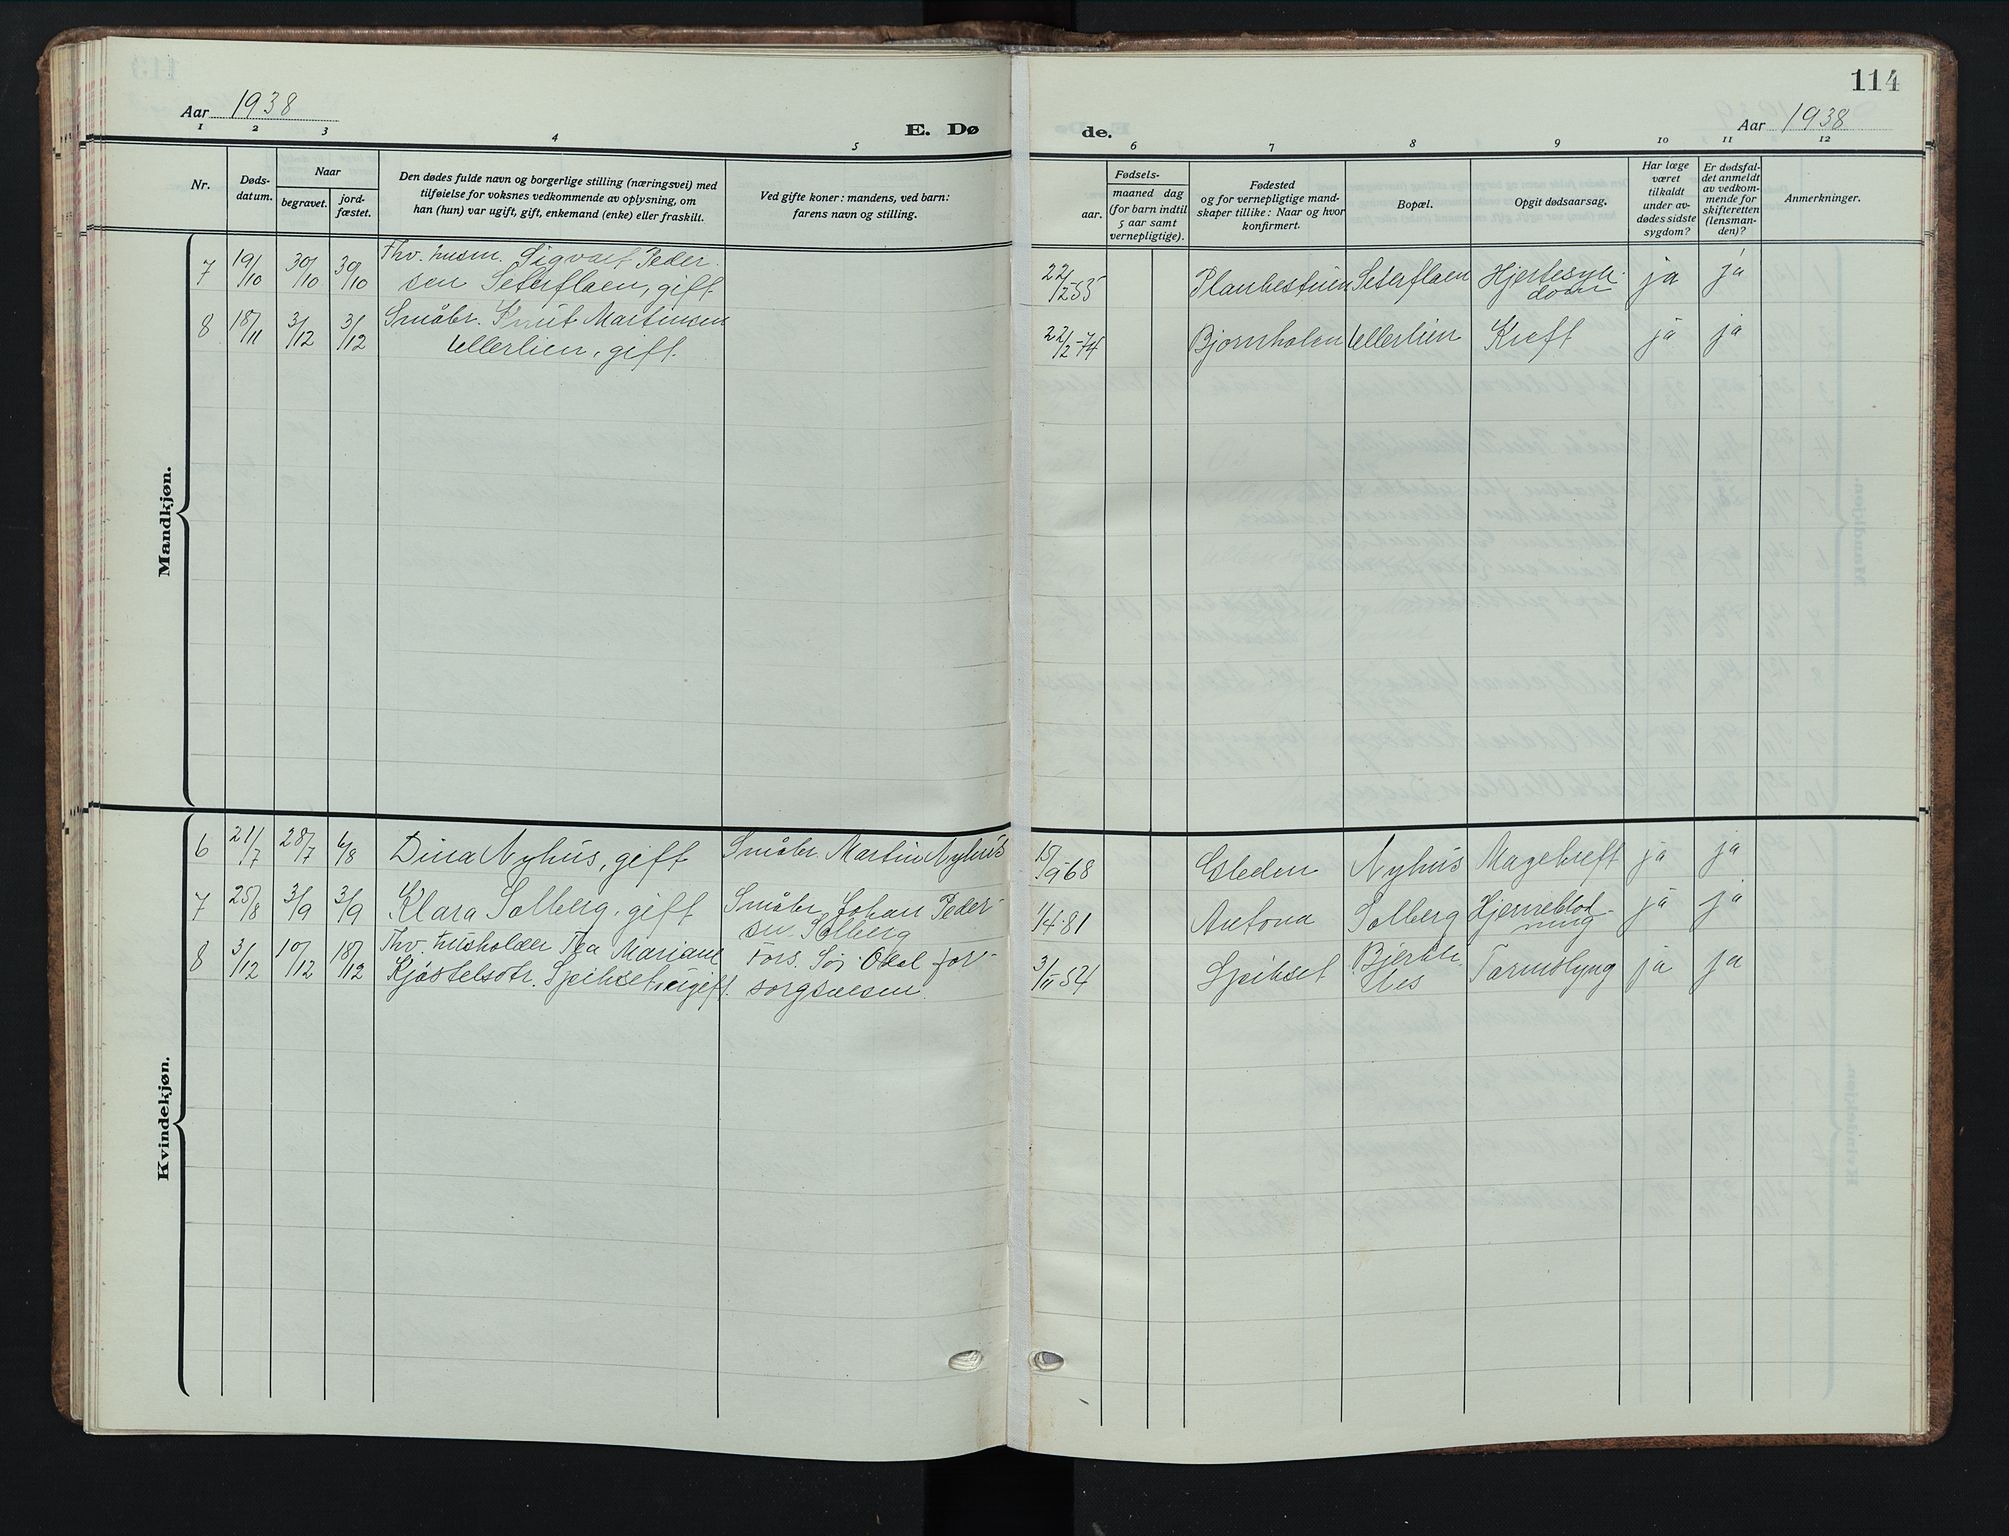 114
Aar 1938
E. Dø
de.
Aar 1938
1 2 3 4 5
6 7 8 9 10 11 12
Nr.
Døds-
datum.
Naar
begravet.
jord-
fæstet.
Den dødes fulde navn og borgerlige stilling (næringsvei) med
tilføielse for voksnes vedkommende av oplysning, om
han (hun) var ugift, gift, enkemand (enke) eller fraskilt.
Ved gifte koner: mandens, ved barn:
farens navn og stilling.
Fødsels-
aar.
maaned dag
(for barn indtil
5 aar samt
vernepligtige).
Fødested
og for vernepligtige mand-
skaper tillike: Naar og hvor
konfirmert.
Bopæl.
Opgit dødsaarsag.
Har læge
været
tilkaldt
under av-
dødes sidste
sygdom?
Er dødsfal-
det anmeldt
av vedkom-
mende for
skifteretten
(lensman-
den)?
Anmerkninger.
Mandkjøn.
7 19/10 30/10 30/10 Fhv. husm. Sigvart Peder-
sen Seterflaen, gift
22/12-55 Planbestuen Seterflaen Hjertesyk-
dom ja ja
8 18/11 3/12 3/12 Småbr. Knut Martinsen
Ullerlien, gift.
22/2-74 Bjørnholen Ullerlien Kreft ja ja
Kvindekjøn.
6 21/7 28/7 6/8 Dina Nyhus, gift Småbr. Martin Nyhus
15/9-68 Nyhus Magekreft ja ja
7 25/8 3/9 3/9 Klara Solberg, gift Småbr. Johan Peder-
sen Solberg
1/4-81 Solberg Hjerneblød-
ning ja ja
8 3/12 10/12 18/12 Fhv. husholder Tea Mariane
Kjøstelsdtr. Speikset, ugift.
Fors. Sør-Odal for-
sorgsvesen.
3/11 54 Speikset Tarmslyng ja ja